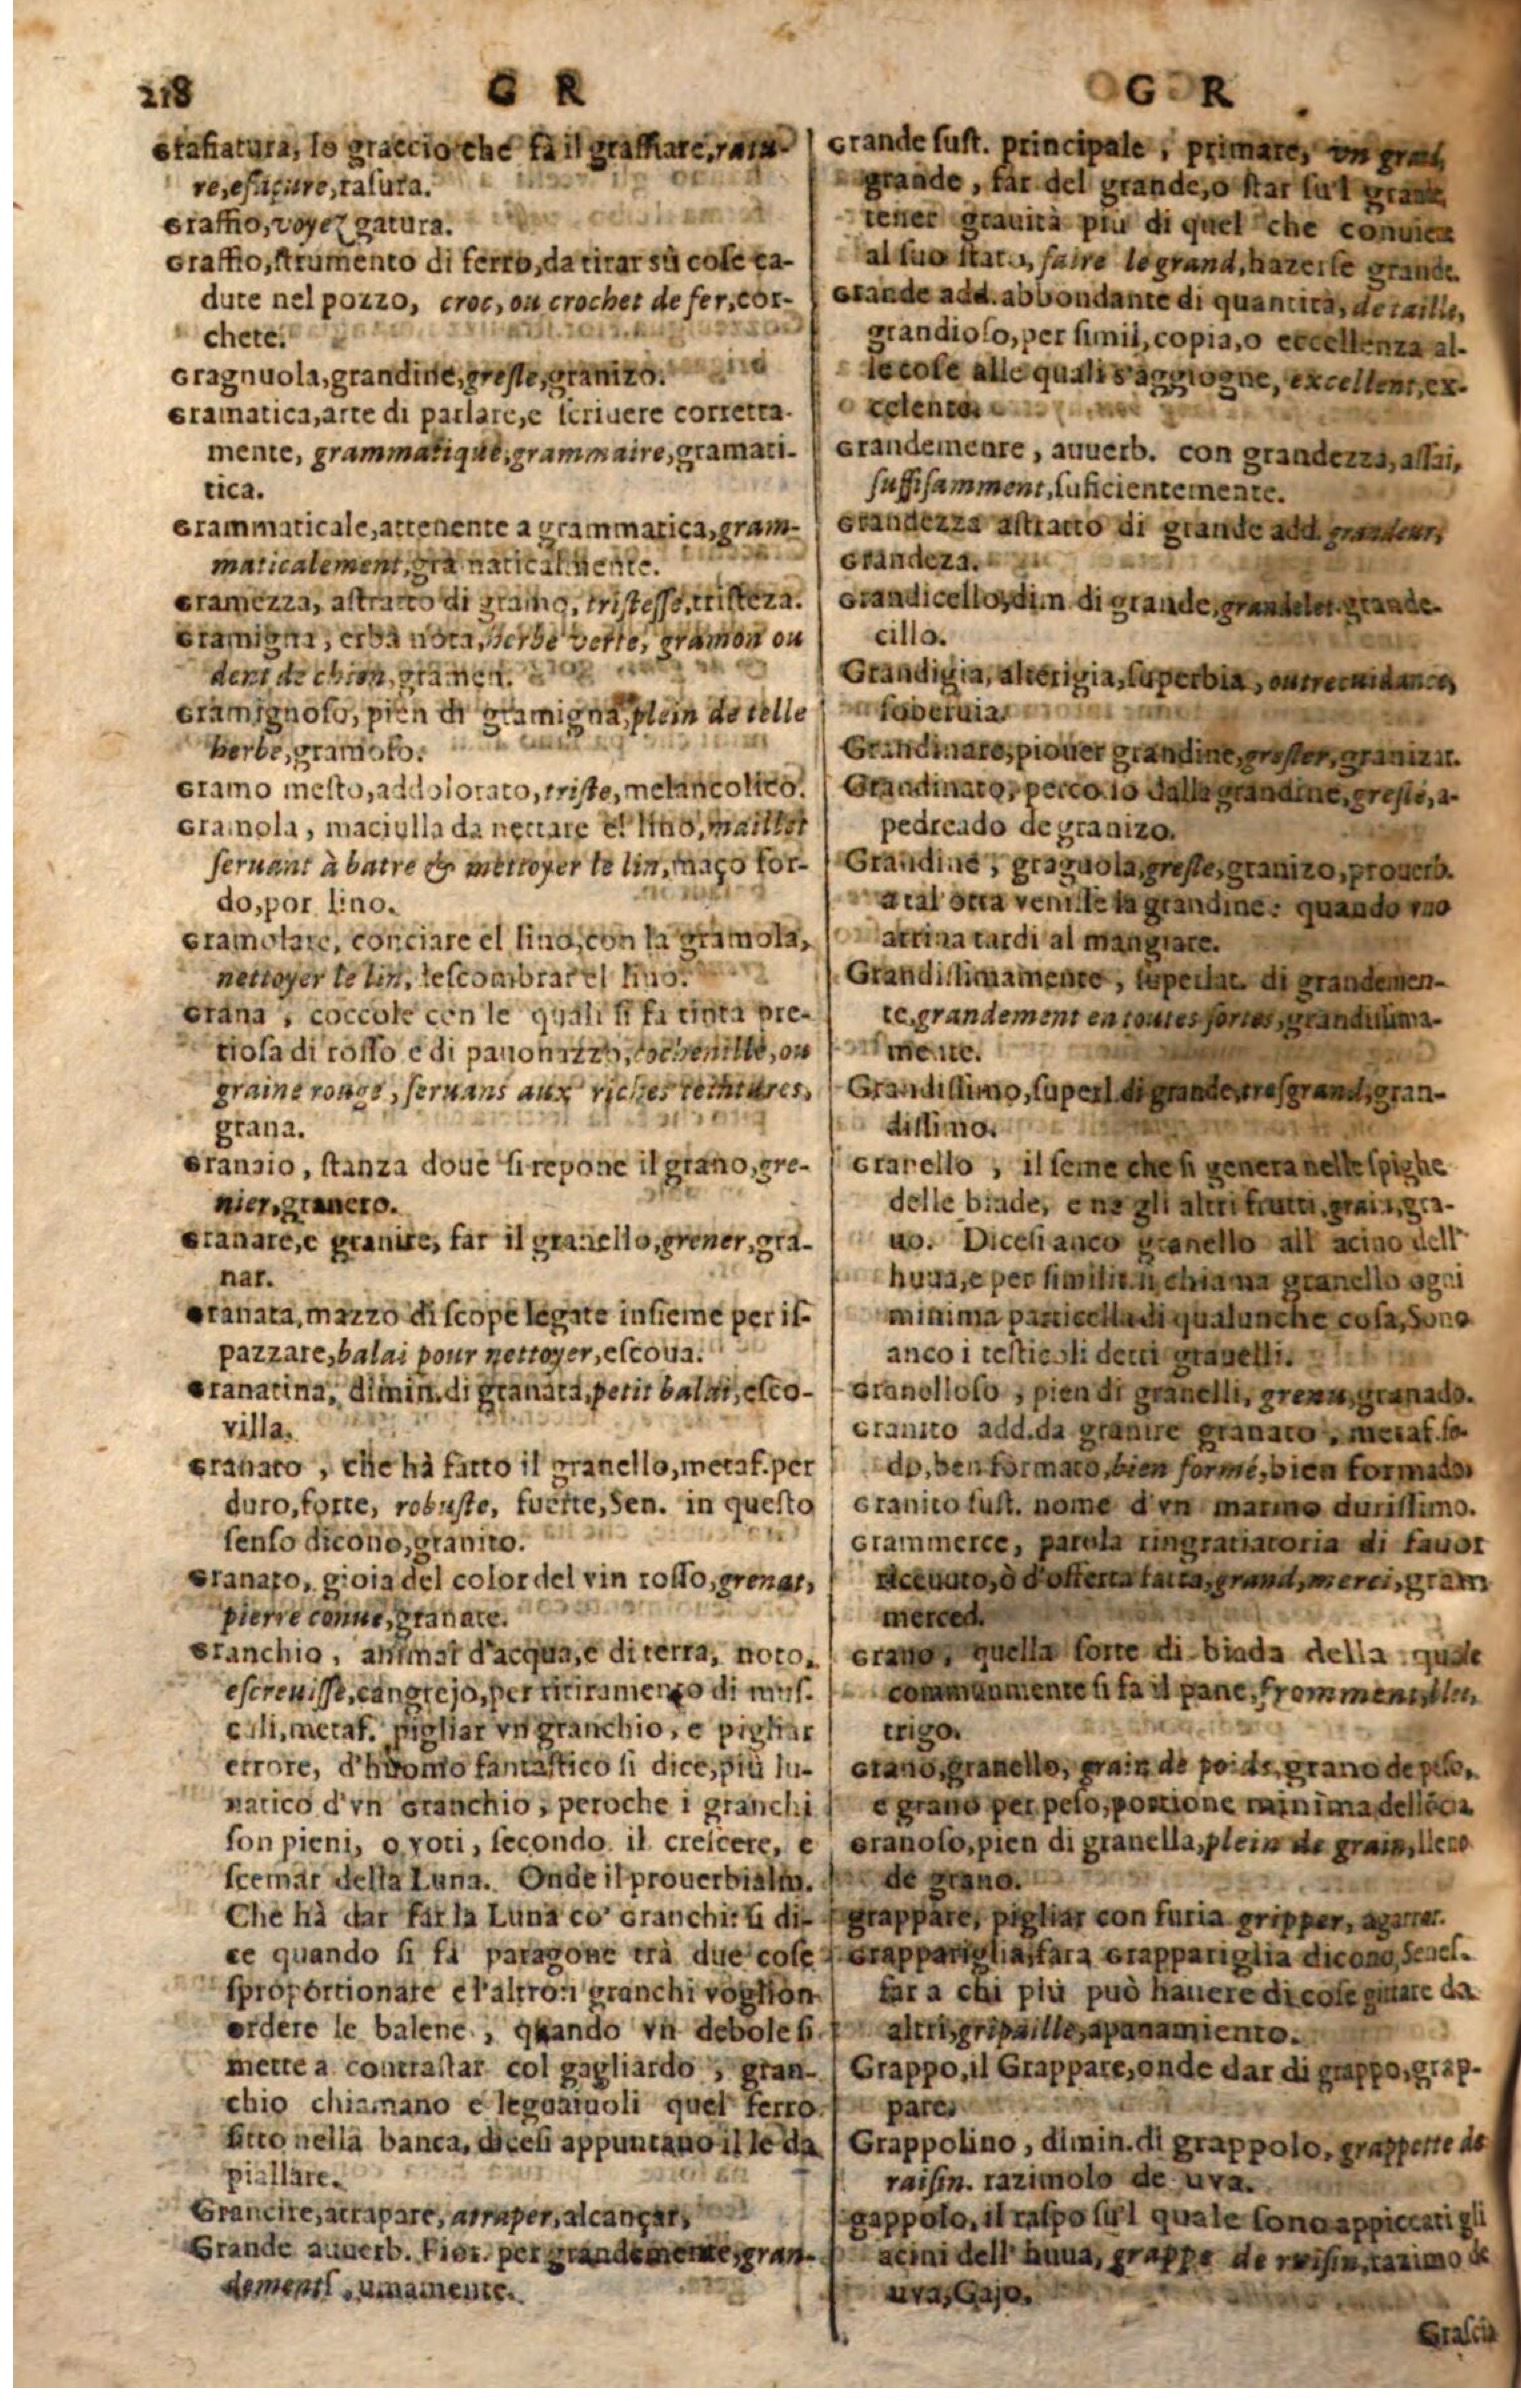 218
G R
Grafiatura, lo graccio che fà il graffiare, ratu-
re, esgçure, rasura.
Graffio, voyez gatura.
Graffio, strumento di ferro, da tirar sù cose ca-
dute nel pozzo, croc, ou crochet de fer, cor-
chete.
Gragnuola, grandine, gresle, granizo.
Gramatica, arte di parlare, e scriuere corretta-
mente, grammatique, grammaire, gramati-
tica.
Grammaticale, attenente a grammatica, gram-
maticalement,
Gramezza, astratto di gramo, tristesse, tristeza.
Gramigna, erba nota, herbe verte, gramon ou
dent de chien, gramen.
Gramignoso, pien di gramigna, plein de telle
herbe, gramoso.
Gramo mesto, addolorato, triste, melancolico.
Gramola, maciulla da nettare el lino, maillet
seruant à batre & mettoyer le lin, maço sor-
do, por lino.
Gramolare, conciare el lino, con la gramola,
nettoyer le lin, descombrar el lino.
Grana, coccole con le quali si fa tinta pre-
tiosa di rosso e di pauonazzo, cochenille, ou
graine rouge, seruans aux riches teintures,
grana.
Granaio, stanza doue si repone il grano, gre-
nier, granero.
Granare, e granire, far il granello, grener, gra-
nar.
Granata, mazzo di scope legate insieme per is-
pazzare, balai pour nettoyer, escoua.
Granatina, dimin. di granata, petit balai, esco-
villa.
Granato, che hà fatto il granello, metaf. per
duro, forte, robuste, fuerte, Sen. in questo
senso dicono, granito.
Granato, gioia del color del vin rosso, grenat,
pierre conue, granate.
Granchio, animal d'acqua, e di terra, noto,
escreuisse, cangrejo, per ritiramento di mus-
culi, metaf. pigliar vn granchio, e pigliar
errore, d'huomo fantastico si dice, più lu-
natico d'vn Granchio, peroche i granchi
son pieni, o voti, secondo il crescere, e
scemar della Luna. Onde il prouerbialm.
Che hà dar far la Luna co' Granchi: si di-
ce quando si fa paragone trà due cose
sproportionate e l'altro: i granchi voglion
ordere le balene, quando vn debole si
mette a contrastar col gagliardo, gran-
chio chiamano e leguaiuoli quel ferro
fitto nella banca, dicesi appuntano il le da
piallare.
Grancire, attrapare, atraper, alcançar,
Grande auuerb. Fior. per grandemente, gran-
dement, umamente.
G R
Grande sust. principale, primare, vn grand,
grande, far del grande, o star su'l grande
tener grauità piu di quel che conuien
al suo stato, faire le grand, hazerse grande.
Grande add. abbondante di quantità, de taille,
grandioso, per simil, copia, o eccellenza al-
le cose alle quali s'aggiogne, excellent, ex-
celento.
Grandemente, auuerb. con grandezza, assai,
suffisamment, suficientemente.
Grandezza astratto di grande add. grandeur,
Grandeza.
Grandicello, dim. di grande, grandelet, grande-
cillo.
Grandigia, alterigia, superbia, outrecuidance,
soberuia.
Grandinare, piouer grandine, gresler, granizar.
Grandinato, percosso dalla grandine, greslé, a-
pedreado de granizo.
Grandine, gragnola, gresle, granizo, prouerb.
a tal otta venisse la grandine: quando vno
arriua tardi al mangiare.
Grandissimamente, superlat. di grandemen-
te, grandement en toutes sortes, grandissima-
mente.
Grandissimo, superl. di grande, tresgrand, gran-
dissimo.
Granello, il seme che si genera nelle spighe
delle biade, e ne gli altri frutti, grain, gra-
no. Dicesi anco granello all'acino dell'
huua, e per similit. si chiama granello ogni
minima particella di qualunche cosa, Sono
anco i testicoli detti granelli.
Granelloso, pien di granelli, grenu, granado.
Granito add. da granire granato, metaf. so-
do, ben formato, bien formé, bien formado.
Granito sust. nome d'vn marmo durissimo.
Grammerce, parola ringratiatoria di fauor
riceuuto, ò d'offerta fatta, grand, merci, gram
merced.
Grano, quella sorte di biada della quale
communmente si fa il pane, fromment, blet,
trigo.
Grano, granello, grain de poids, grano de peso,
e grano per peso, portione minima dell'ōcia
Granoso, pien di granella, plein de grain, lleno
de grano.
grappare, pigliar con furia gripper, agarrar.
Grappariglia, fara Grappariglia dicono, Senes.
far a chi più può hauere di cose gittare da
altri, gripaille, apanamiento.
Grappo, il Grappare, onde dar di grappo, grap-
pare.
Grappolino, dimin. di grappolo, grappette de
raisin. razimolo de uva.
gappolo, il raspo su'l quale sono appiccati gli
acini dell'huua, grappe de raisin, razimo de
uva, Gajo.
Grascia